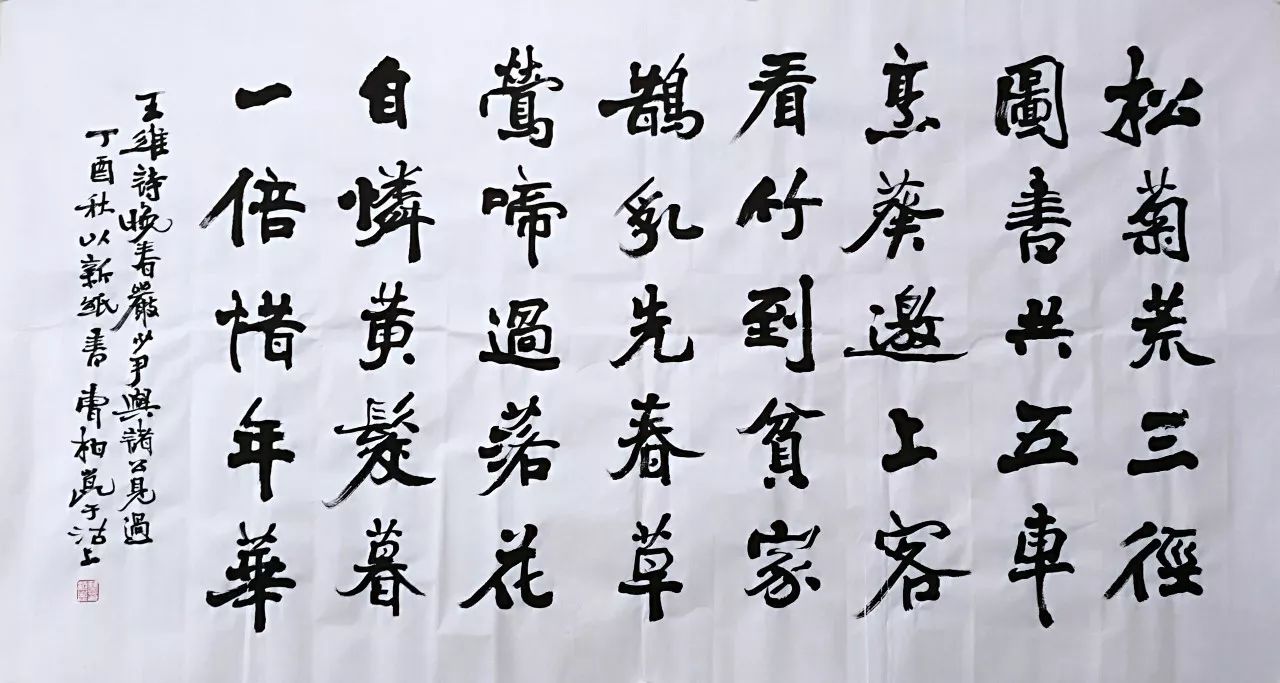 松菊荒三徑
圖書共五車
烹葵邀上客
看竹到貧家
鵲乳先春草
鶯啼過落花
自憐黃髮暮
一倍惜年華
王維詩晚春嚴少尹與諸公見過
丁酉秋以新紙書曹柏崑于沽上